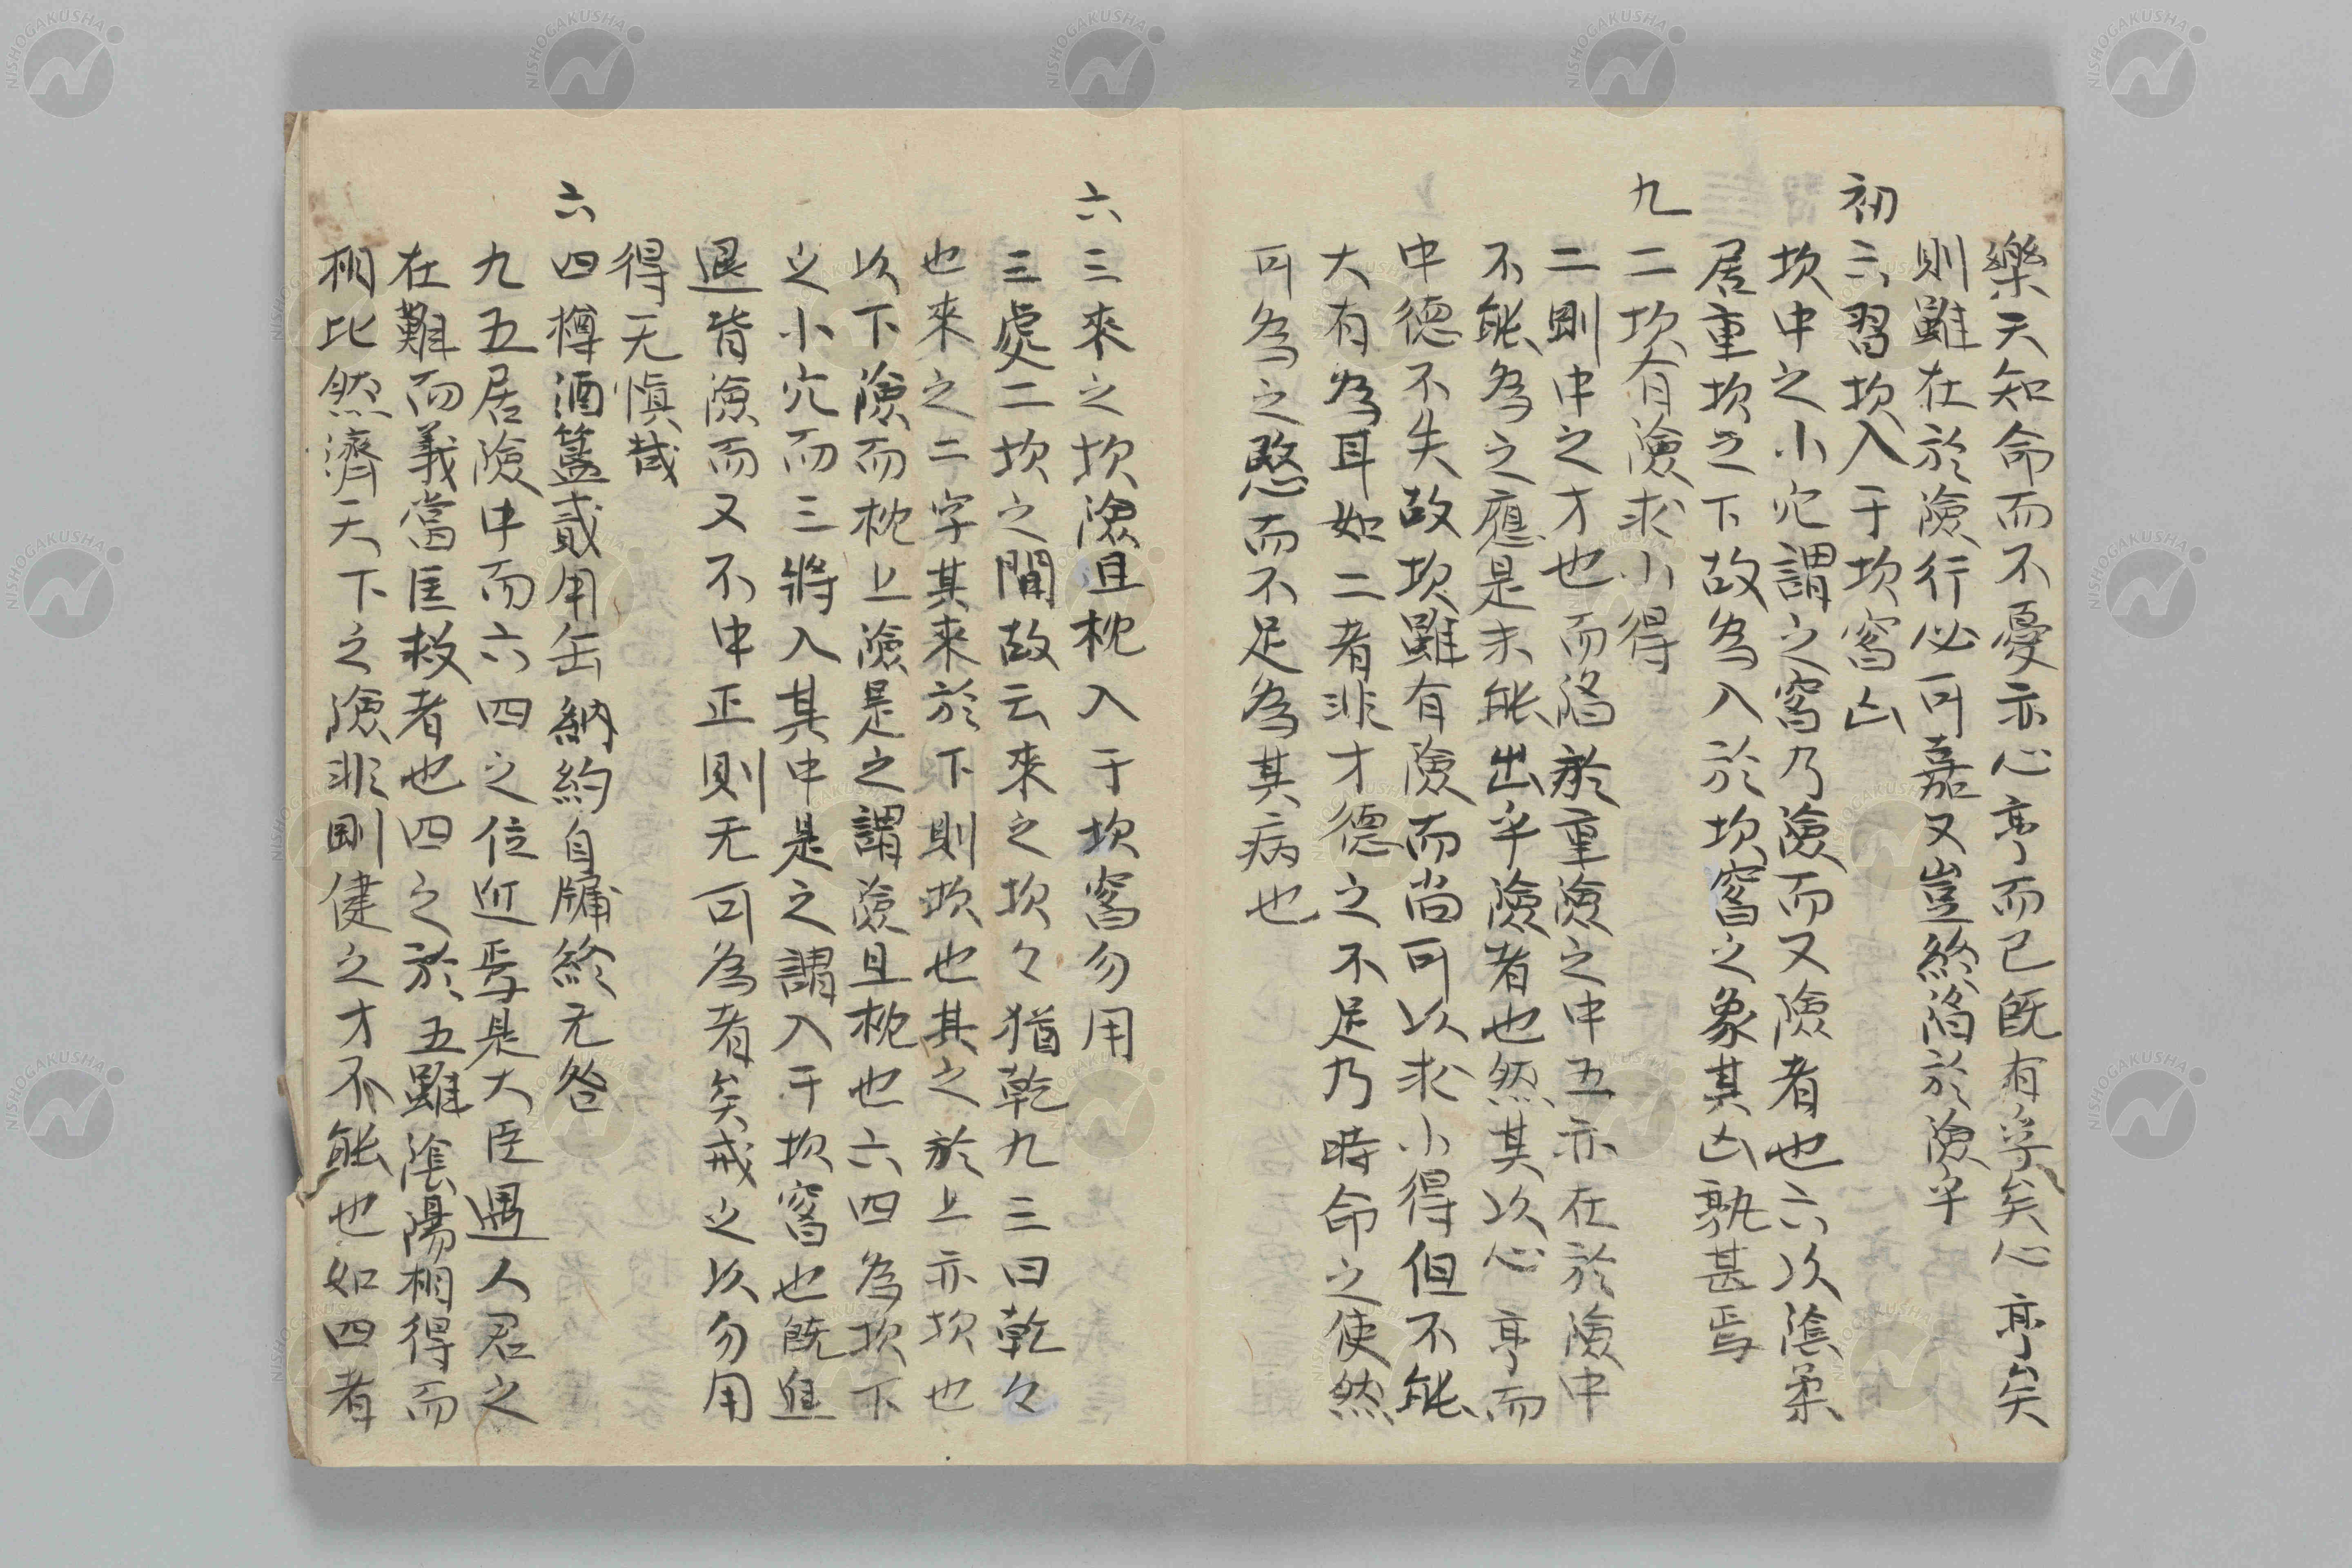 樂天知命而不憂亦心亨而已既有孚矣心亨矣
則雖在於險行必可嘉又豈終陷於險乎
初六習坎入于坎窞凶
坎中之小穴謂之窞乃險而又險者也六以陰柔
居重坎之下故為入於坎窞之象其凶孰甚焉
九二坎有險求小得
二剛中之才也而陷於重險之中五亦在於險中
不能為之應是未能出乎險者也然其以心亨而
中德不失故坎雖有險而尚可以求小得但不能
大有為耳如二者非才德之不足乃時命之使然
可為之愍而不足為其病也
六三來之坎險且枕入于坎窞勿用
三處二坎之間故云來之坎々猶乾九三曰乾々
也來之二字其來於下則坎也其之於上亦坎也
以下險而枕上險是之謂險且枕也六四為坎下
之小穴而三將入其中是之謂入于坎窞也既進
退皆險而又不中正則无可為者矣戒之以勿用
得无慎哉
六四樽酒簋貳用缶納約自牖終无咎
九五居險中而六四之位近焉是大臣遇人君之
在難而義當匡救者也四之於五雖陰陽相得而
相比然濟天下之險非剛健之才不能也如四者